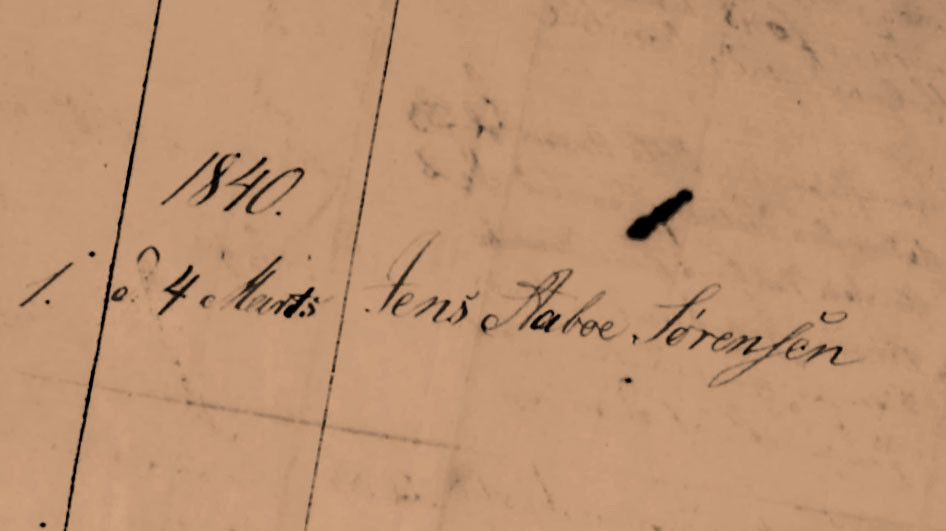 1840.
1. d. 4 Marts Jens Aaboe Sørensen